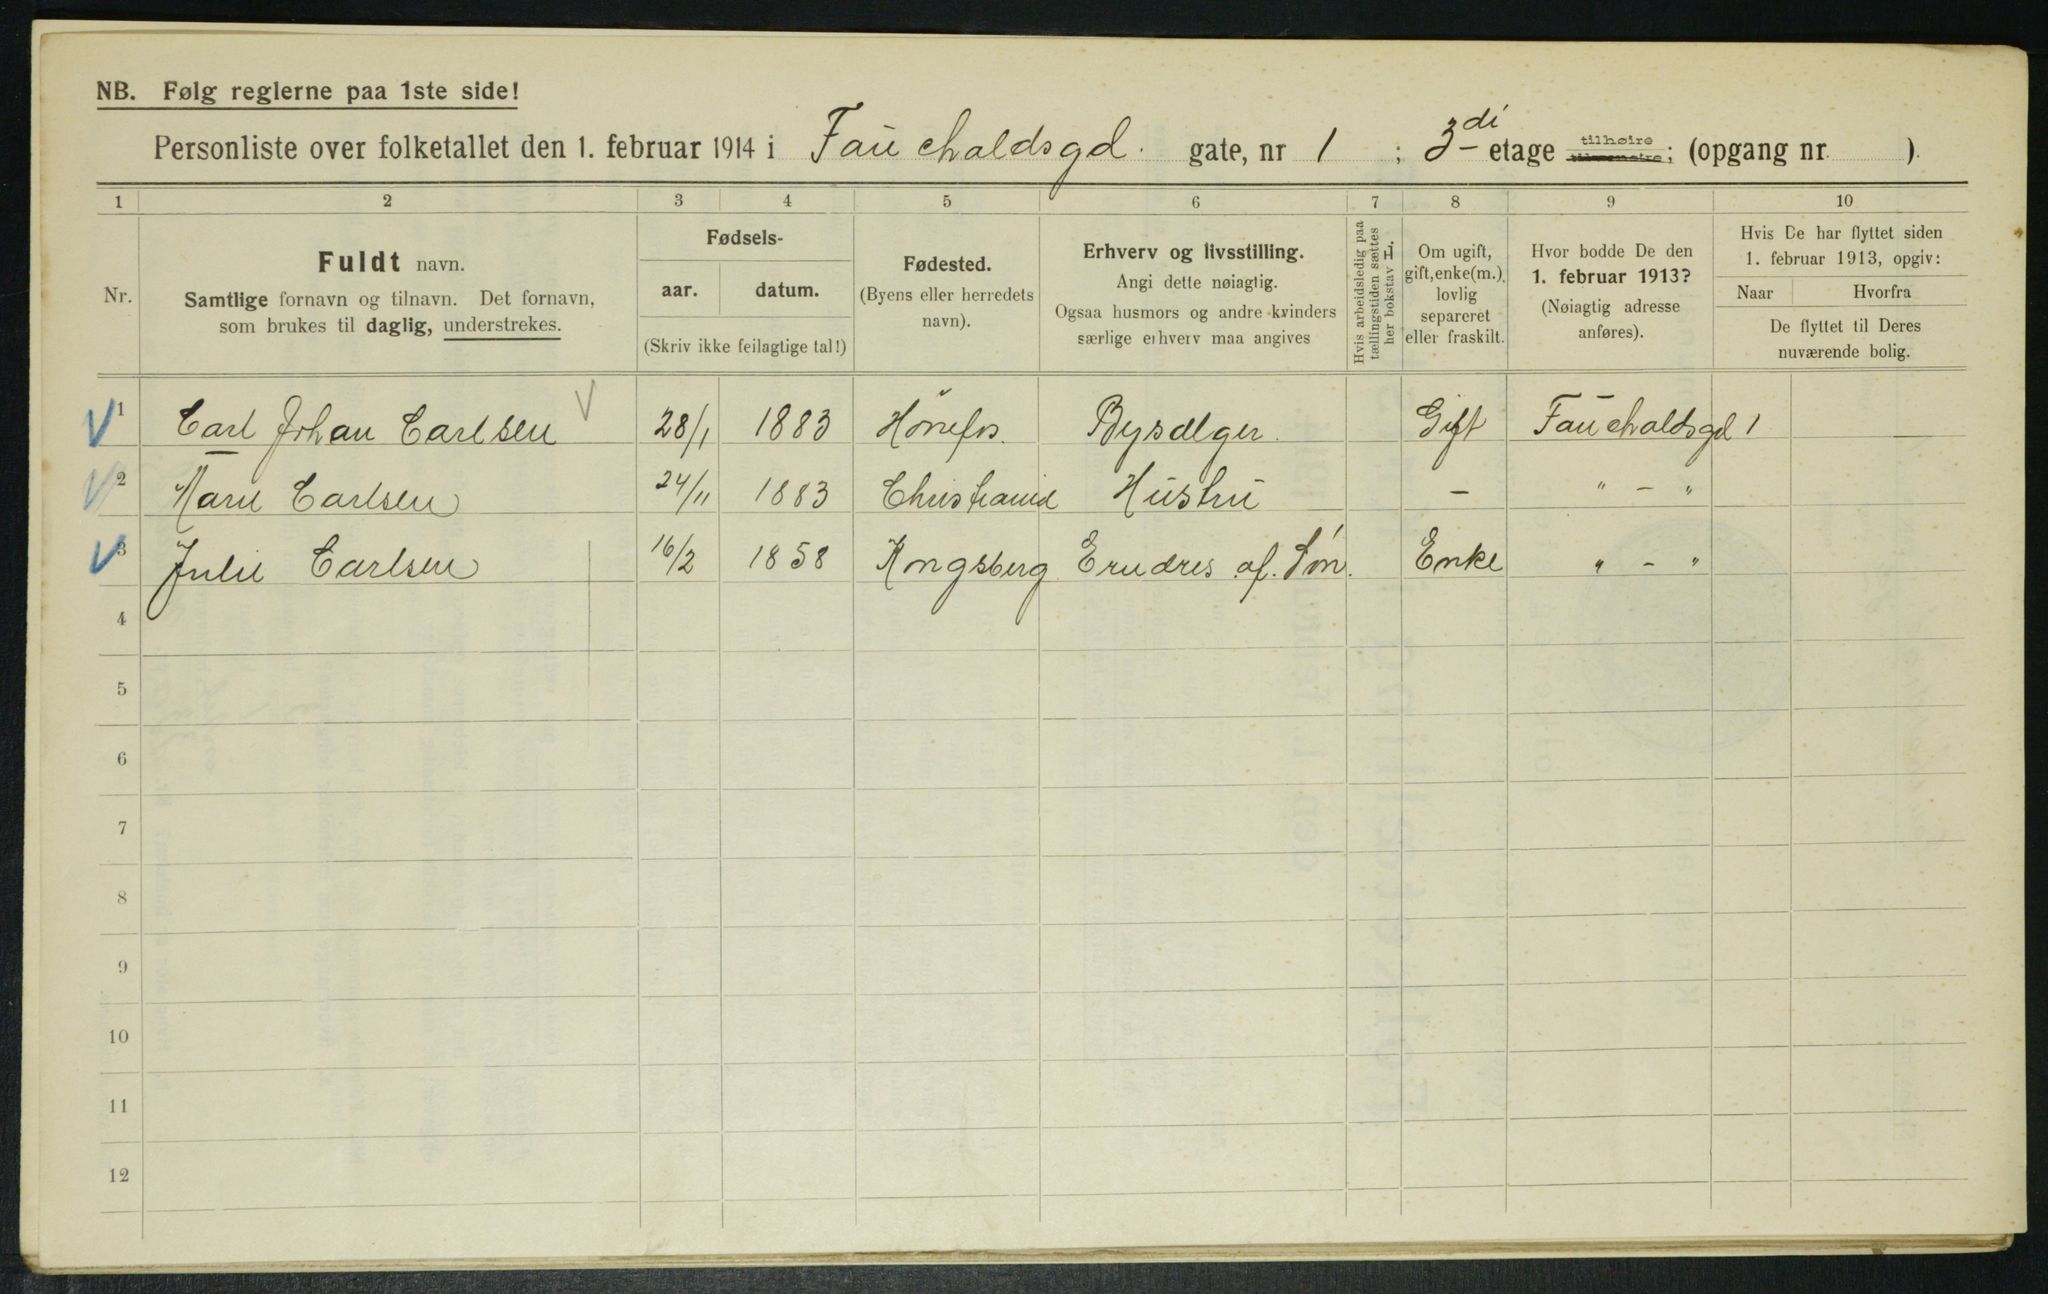 NB. Følg reglerne paa 1ste side!
Personliste over folketallet den 1. februar 1914 i Fauchaldsgd. gate, nr 1 ; 3di etage tilhøire ; (opgang nr. ).
1 2 3 4 5 6 7 8 9 10
Nr.
Fuldt navn.
Samtlige fornavn og tilnavn. Det fornavn,
som brukes til daglig, understrekes.
Fødsels-
aar. datum.
(Skriv ikke feilagtige tal!)
Fødested.
(Byens eller herredets
navn).
Erhverv og livsstilling.
Angi dette nøiagtig.
Ogsaa husmors og andre kvinders
særlige erhverv maa angives
Hvis arbeidsledig paa
tællingstiden sættes
her bokstav L.
Om ugift,
gift, enke(m.),
lovlig
separeret
eller fraskilt.
Hvor bodde De den
1. februar 1913?
(Nøiagtig adresse
anføres).
Hvis De har flyttet siden
1. februar 1913, opgiv:
Naar Hvorfra
De flyttet til Deres
nuværende bolig.
1 Carl Johan Carlsen 28/1 1883 Hønefos. Bysælger. Gift Fauchaldsgd 1
2 Marie Carlsen 24/11 1883 Christiania Hustru – " – "
3 Julie Carlsen 16/2 1858 Kongsberg Ernæres af. Søn. Enke " – "
4
5
6
7
8
9
10
11
12